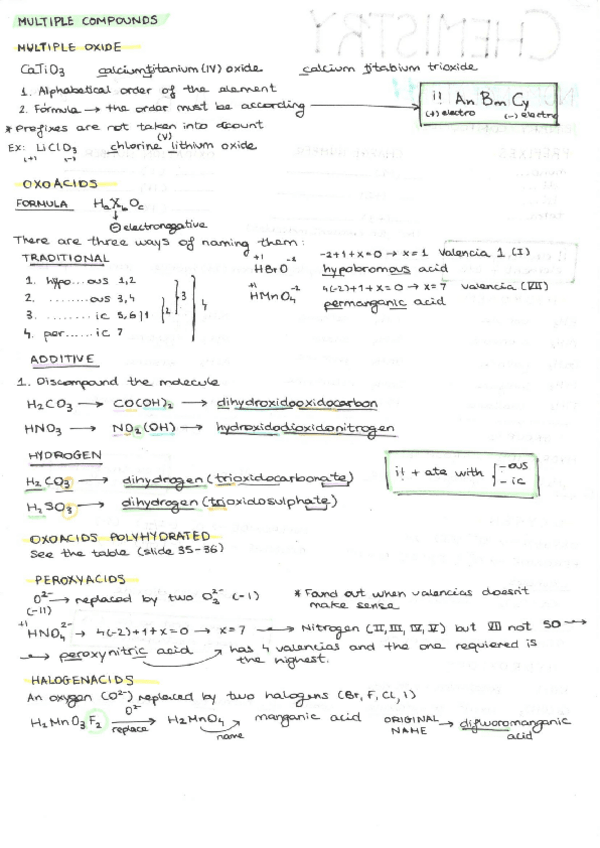 MULTIPLE COMPOUNDS
MULTIPLE OXIDE
CaTiO3 calcium titanium (IV) oxide calcium titabium trioxide
1. Alphabetical order of the element
2. Formula → the order must be according → ¡! An Bm Cy
(+) electro (-) electro
* Prefixes are not taken into dcount
Ex: LiClO3 chlorine (V) lithium oxide
(+1) (-3)
OXOACIDS
FORMULA HaXbOc
↓
⊖ electronegative
There are three ways of naming them:
TRADITIONAL
+1 -2
HBrO -2+1+x=0 → x=1 Valencia 1 (I)
hypobromous acid
1. hypo...ous 1,2
2. ........ous 3,4
3. ......... ic 5,6 | 1 } 2 } 3 } 4
4. per......ic 7
+1 -2
HMnO4 4(-2)+1+x=0 → x=7 valencia (VII)
permanganic acid
ADDITIVE
1. Discompound the molecule
H2CO3 → CO(OH)2 → dihydroxidooxidocarbon
HNO3 → NO2(OH) → hydroxidodioxidonitrogen
HYDROGEN
H2CO3 → dihydrogen (trioxidocarbonate)
H2SO3 → dihydrogen (trioxidosulphate)
¡! + ate with { -ous
-ic
OXOACIDS POLYHYDRATED
See the table (slide 35-36)
PEROXYACIDS
O2- → replaced by two O2 2- (-1) * Found out when valencias doesn't
(-II) make sense
+1 2-
HNO4 → 4(-2)+1+x=0 → x=7 → Nitrogen (II, III, IV, V) but VII not SO →
→ peroxynitric acid → has 4 valencias and the one requiered is
the highest.
HALOGENACIDS
An oxygen (O2-) replaced by two halogens (Br, F, Cl, I)
H2MnO3F2 O2- → replace H2MnO4 name manganic acid ORIGINAL NAME → difluoromanganic
acid